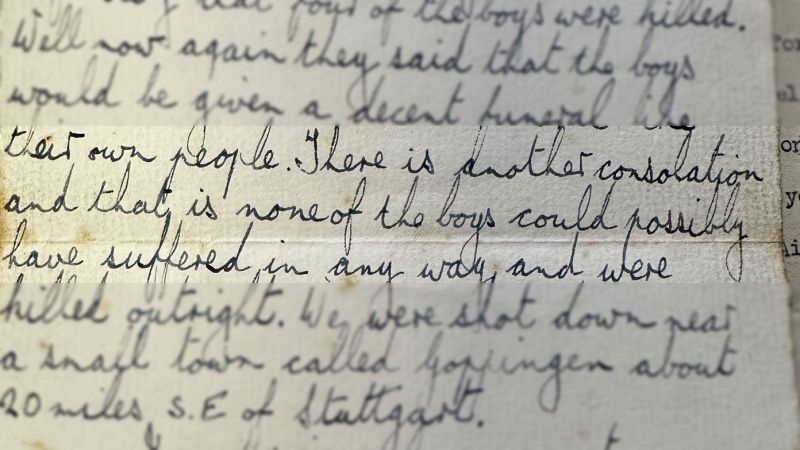 that four of the boys were killed.
Well now again they said that the boys
would be given a decent funeral like
their own people. There is another consolation
and that is none of the boys could possibly
have suffered in any way and were
killed outright. We were shot down near
a small town called Goppingen about
20 miles S.E of Stuttgart.